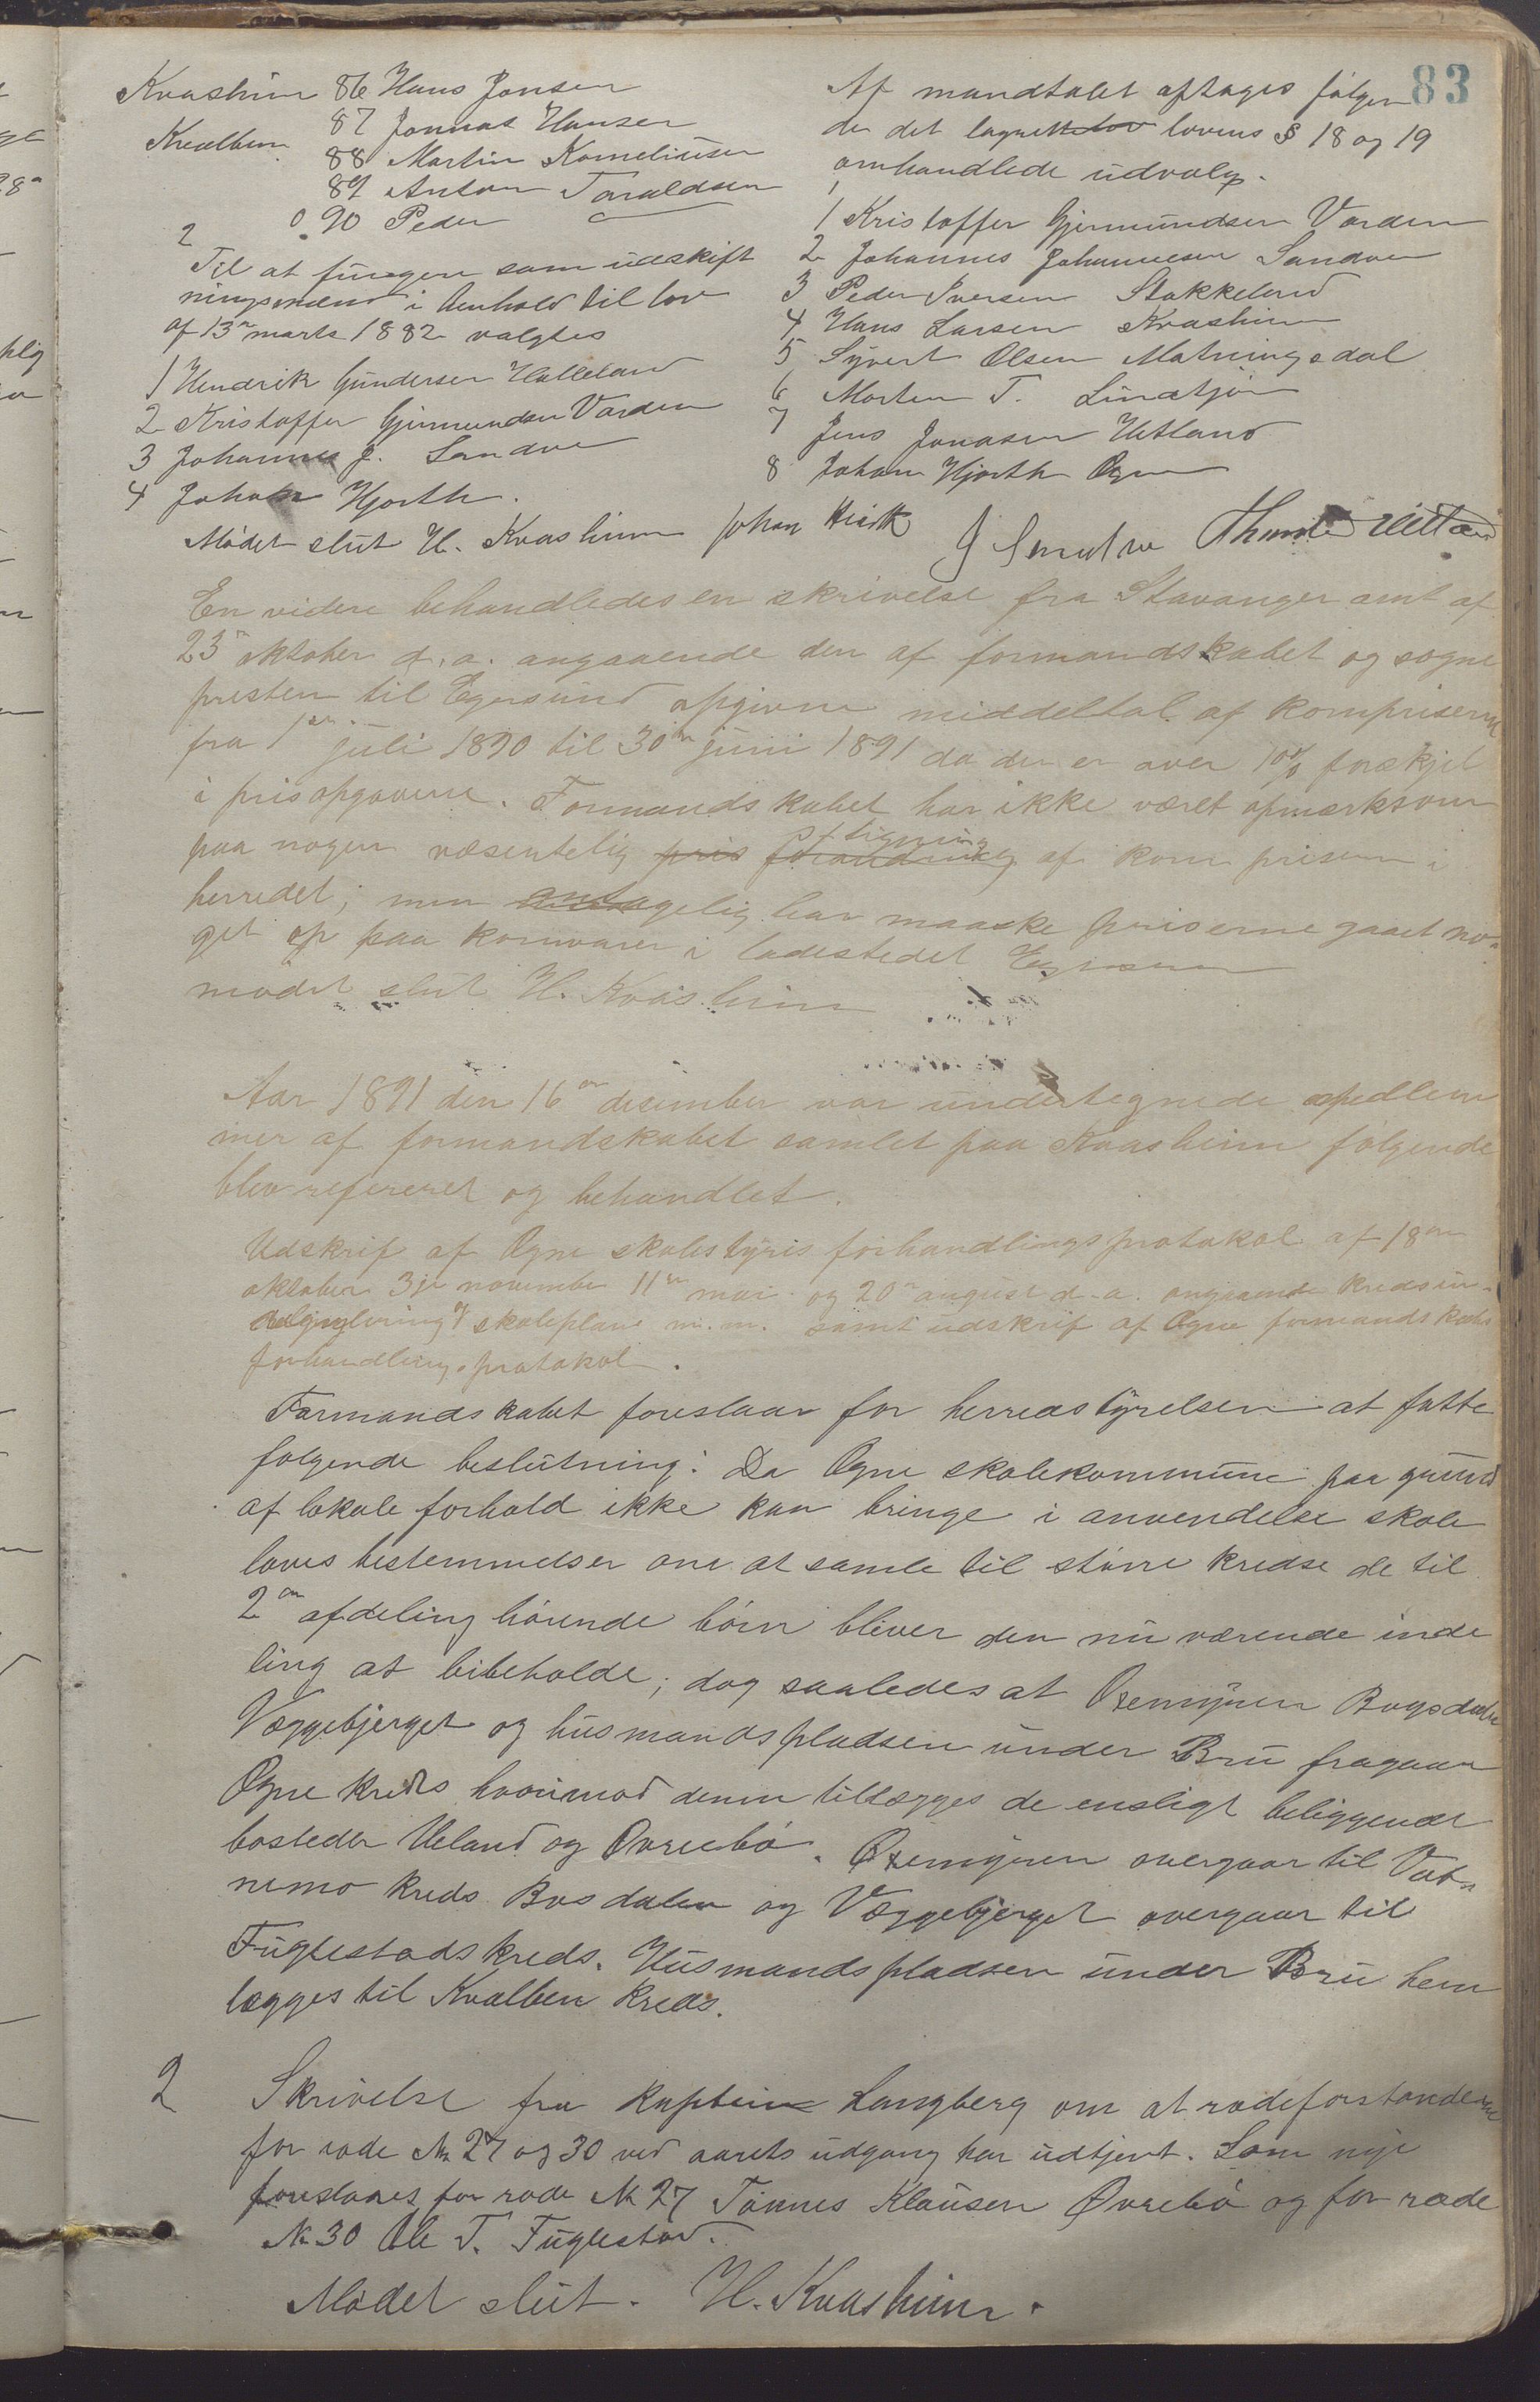 83
Kvashim 86 Hans Jonsen
Kvalben 87 Jonnas Hansen
88 Martin Korneliusen
89 Anton Taraldsen
90 Peder
2
Til at fungere som udskift
ningsmænd i henhold til lov
af 13de marts 1882 valgtes
1 Hendrik Gundersen Helleland
2 Kristoffer Gjermundsen Varden
3 Johannes J. Sandve
4 Johan Hjorth.
Af mandtalet aftages følgen
de det lagrettelov lovens § 18 og 19
omhandlede udvalg.
1 Kristoffer Gjermundsen Varden
2 Johannes Johannesen Sandve
3 Peder Iversen Stokkeland
4 Hans Larsen Kvashim
5 Syvert Olsen Matningsdal
6 Morten T. Lindtjørn
7 Jens Jonasen Hetland
8 Johan Hjorth Ogne
Mødet slut H. Kvashim Johan Hiorth J Sandve
En videre behandledes en skrivelse fra Stavanger amt af
23de oktober d.a. angaaende den af formandskabet og sogne
presten til Egersund opgivne middeltal af kornpriserne
fra 1ste juli 1890 til 30te juni 1891 da der er over 10% forskjel
i prisopgaverne. Formandskabet har ikke været opmærksom
paa nogen væsentelig pris forandring stigning af korn prisene i
herredet; men antagelig har maaske priserne gaaet no-
get op paa kornvarer i ladestedet Egersund
mødet slut H. Kvashim
Aar 1891 den 16de desember var undertegnede medlem
mer af formandskabet samlet paa Kvashim følgende
blev refereret og behandlet.
Udskrif af Ogne skolestyris forhandlingsprotokol af 18de
oktober 3je november 11te mai og 20de august d.a. angaaende kredsin-
regulering skoleplan m.m. samt udskrif af Ogne formandskabs
forhandlingsprotokol.
Formandskabet foreslaar for herredstyrelsen at fatte
følgende beslutning: Da Ogne skolekommune paa grund
af lokale forhold ikke kan bringe i anvendelse skole
lovens bestemmelser om at samle til større kredse de til
2den afdeling hørende børn bliver den nu værende inde
ling at bibeholde; dog saaledes at Oxemyren Bogsdalen
Væggebjerget og husmandspladsen under Bru fragaar
Ogne kreds hvorimod denne tillægges de ensligt beliggende
bosteder Ueland og Øvrebø. Oxemyren overgaar til Vat-
nemo kreds Bosdalen og Væggebjerget overgaar til
Fuglestads kreds. Husmandspladsen under Bru hen
lægges til Kvalben kreds.
2 Skrivelse fra kaptein Langberg om at rodeforstanderne
for rode No 27 og 30 ved aarets udgang har udtjent. Som nye
foreslaaes for rode No 27 Tønnes Klausen Øvrebø og for rode
No 30 Ole T. Fuglestad.
Mødet slut. H. Kvashim.